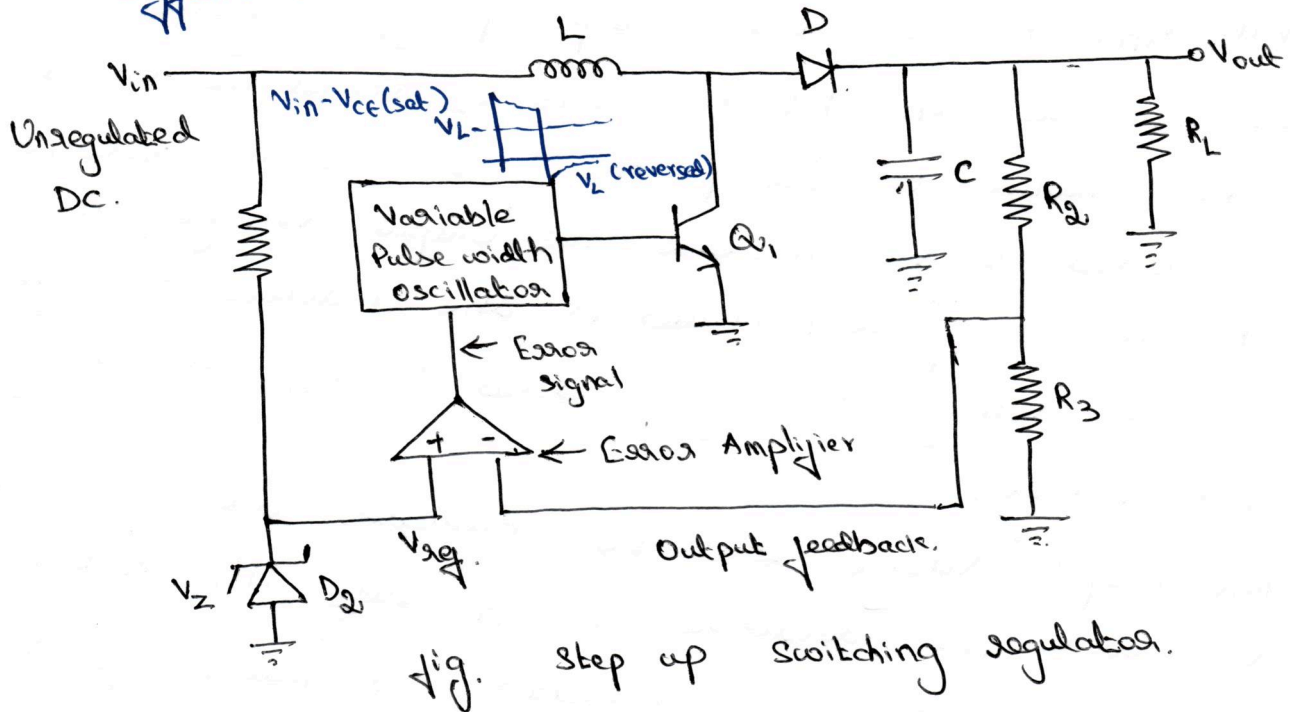 L
D
Vin
Vout
Unregulated
DC.
Vin-VCE(sat)
VL
VL (reversed)
Variable
Pulse width
oscillator
Q1
C
R2
RL
← Error
signal
+ -
← Error Amplifier
R3
Vref.
Output feedback.
VZ
D2
fig. Step up switching regulator.